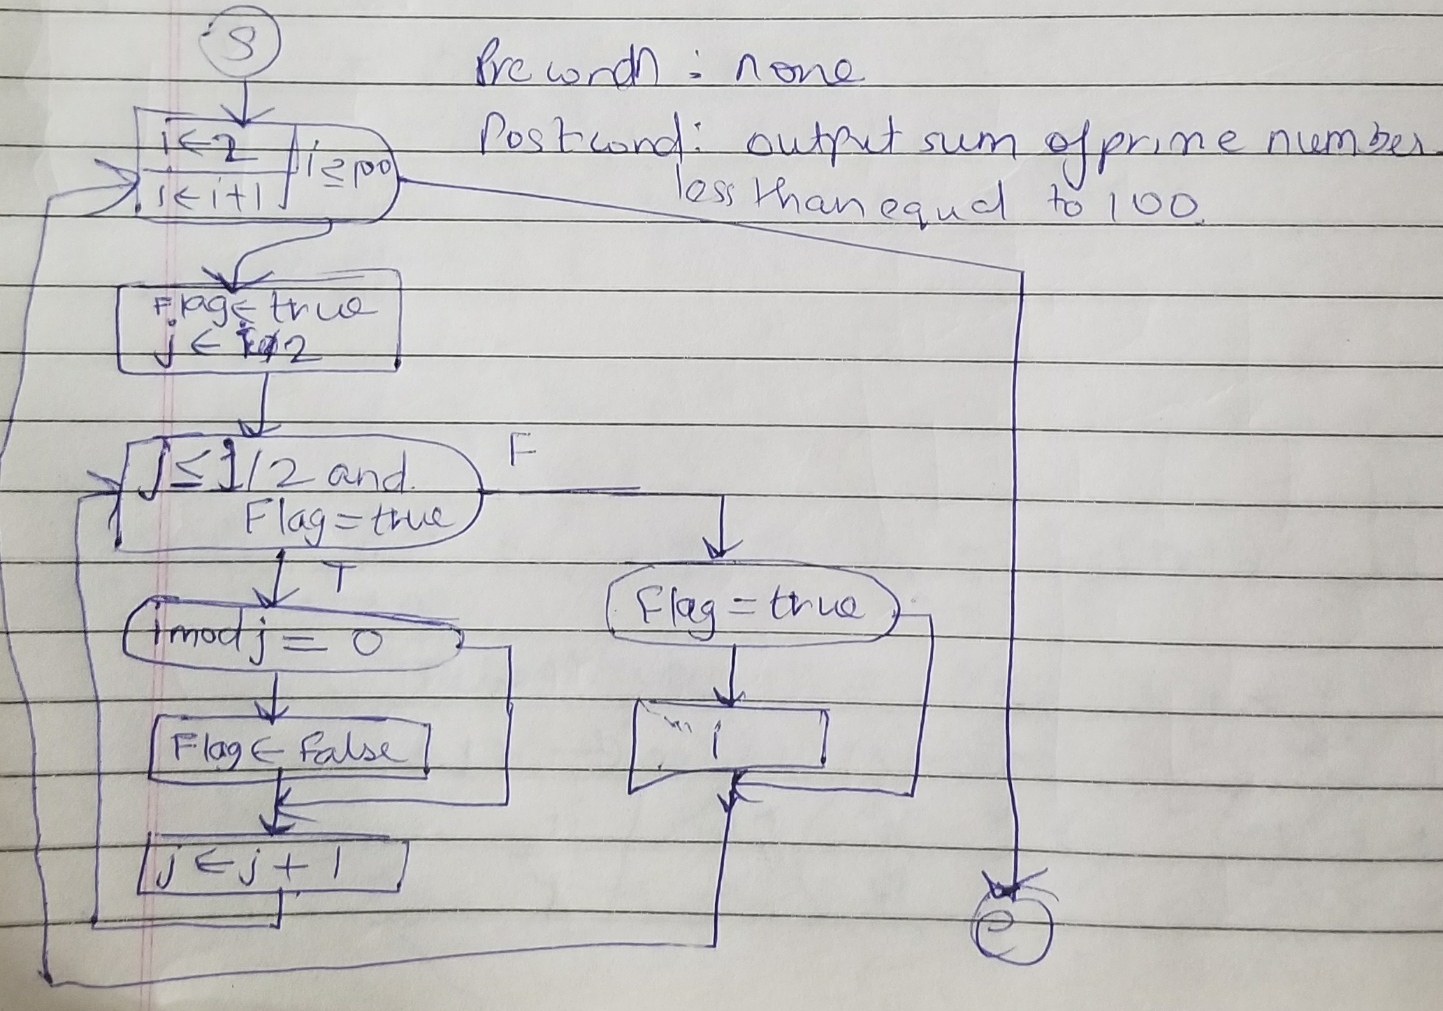 S
Precondn : none
Postcond: output sum of prime number
less than equal to 100.
i ← 2
i ← i+1
i ≤ 100
Flag ← true
j ← 2
j ≤ i/2 and
Flag = true
F
T
i mod j = 0
Flag = true
Flag ← false
i
j ← j + 1
e